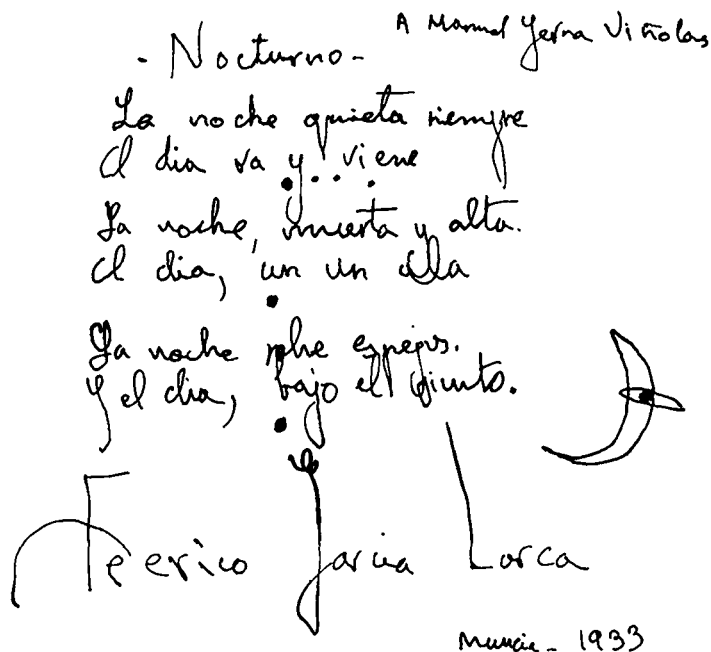 A Manuel Yerna Viñolas
- Nocturno -
La noche quieta siempre
El dia va y viene
La noche, muerta y alta.
El dia, un un ala
La noche sobre espejos.
Y el dia, bajo el viento.
Federico García Lorca
Murcia - 1933